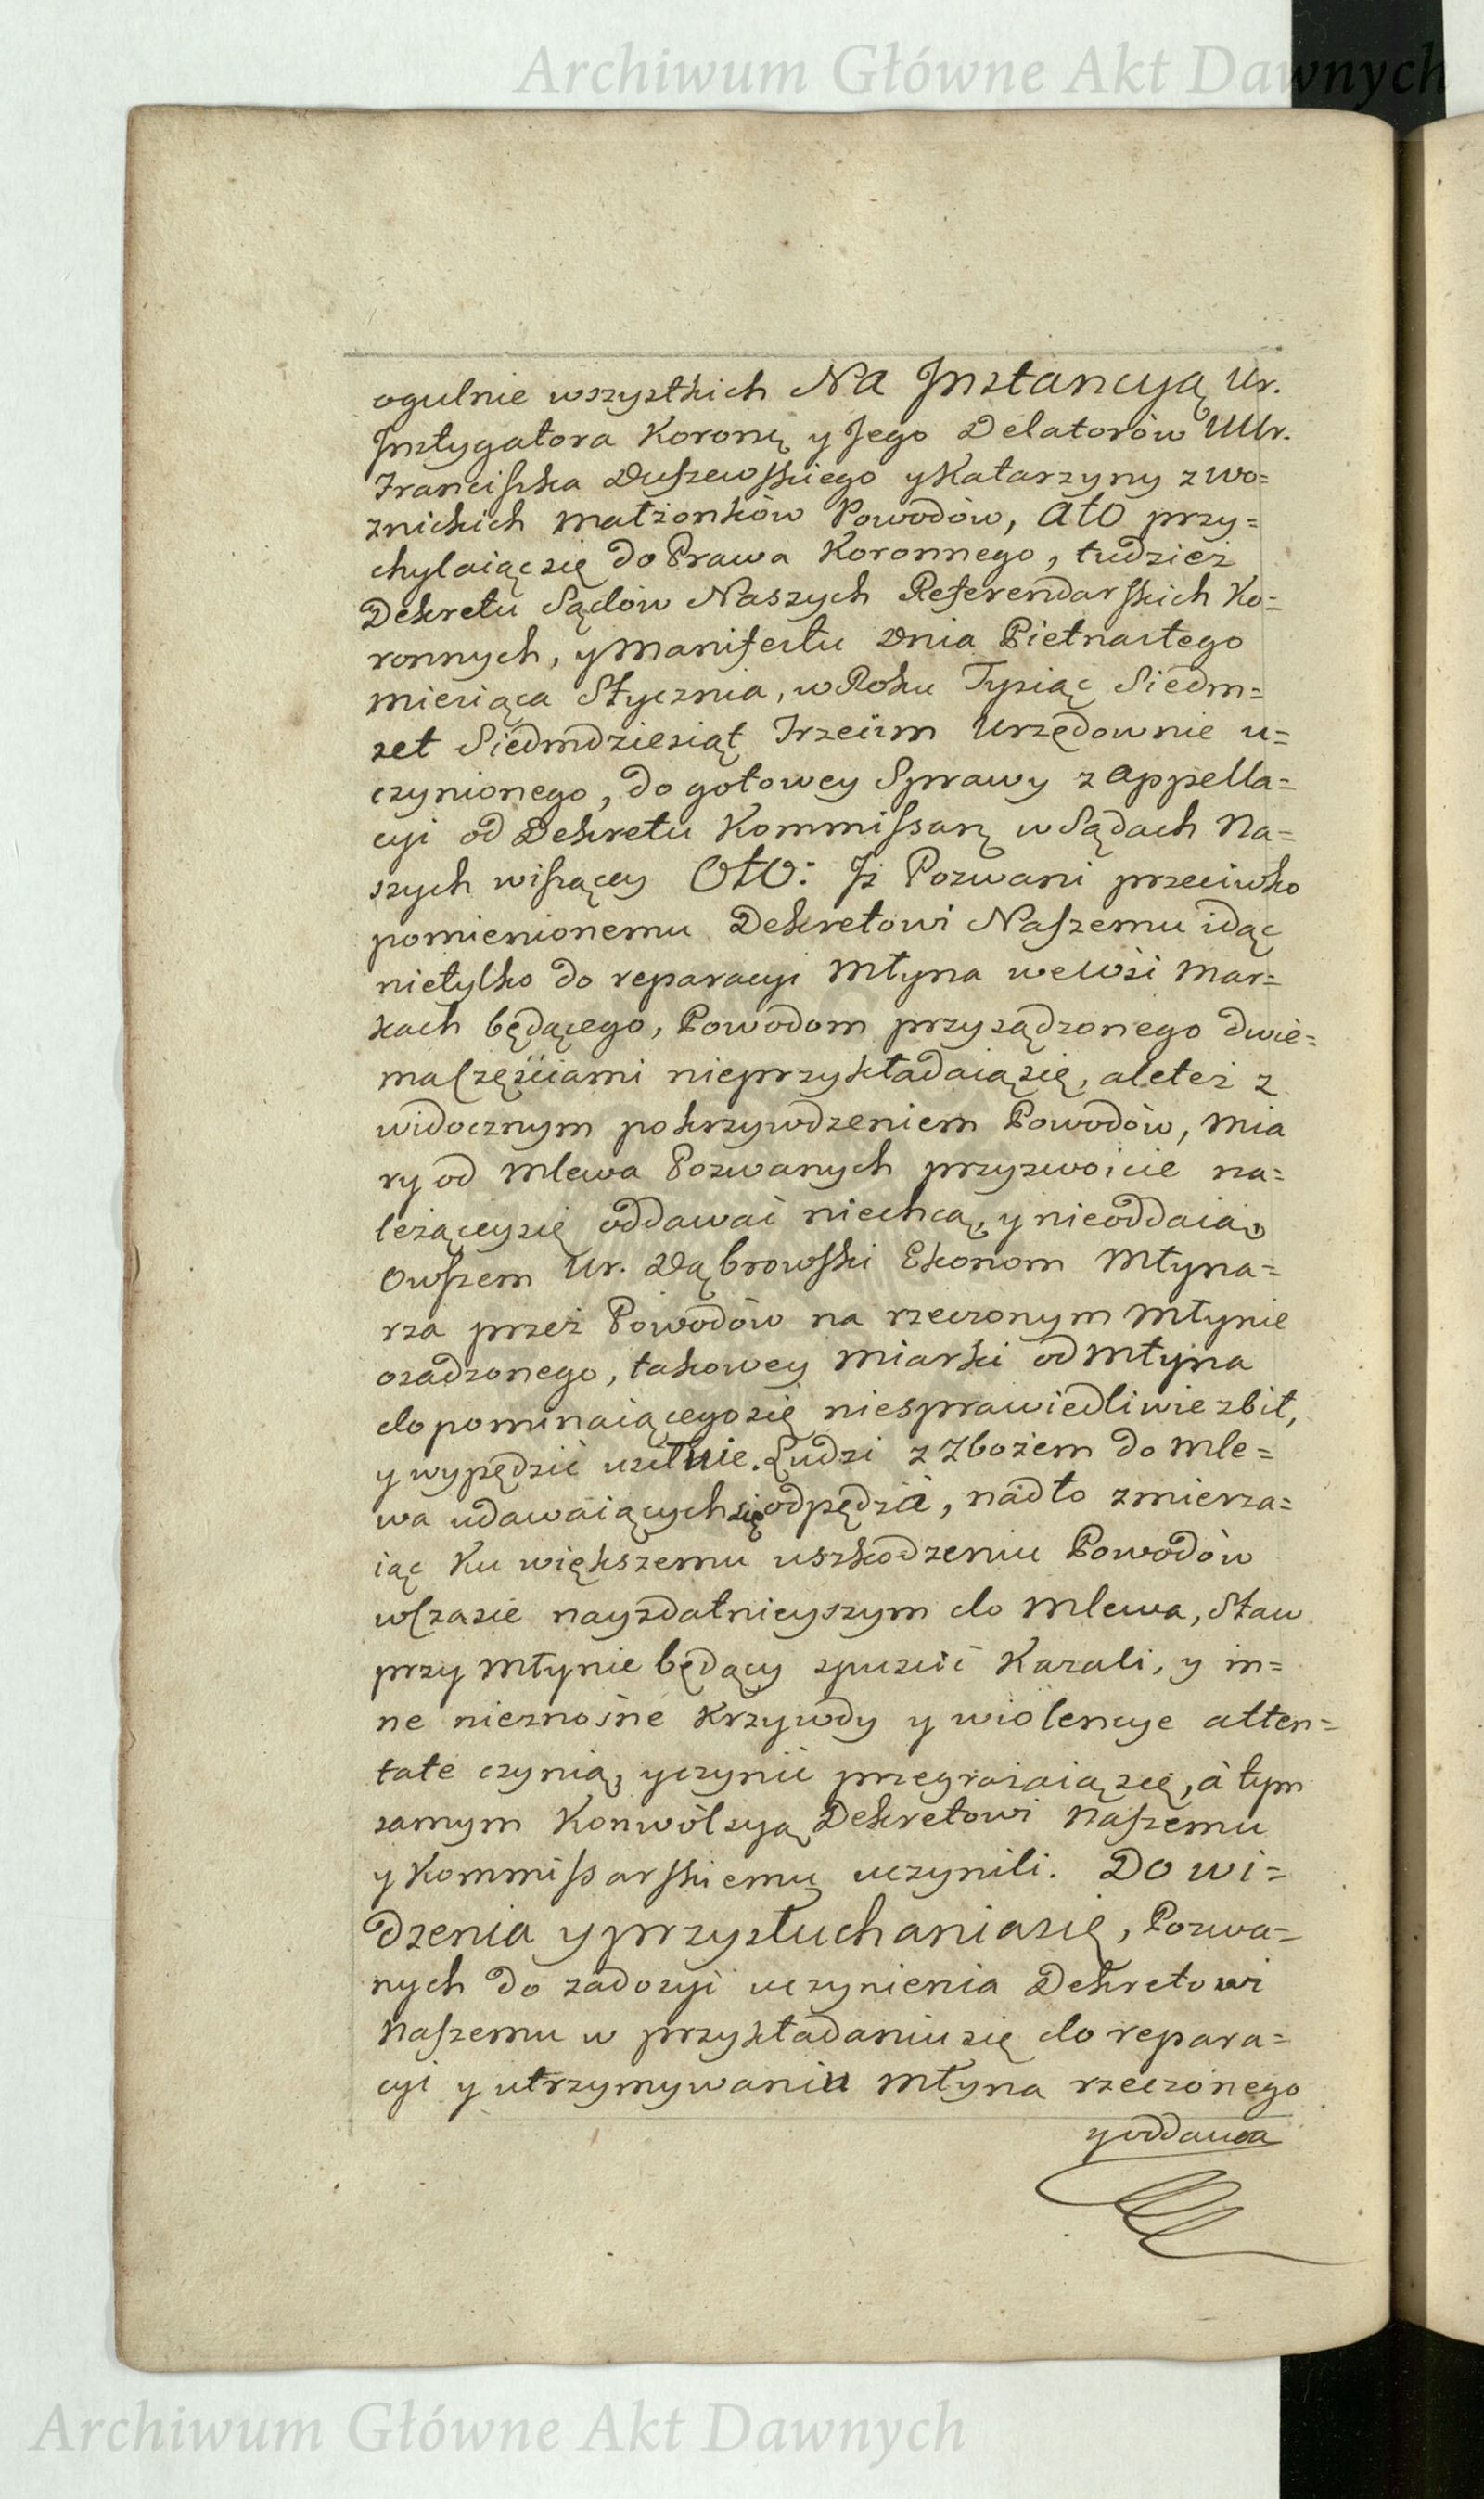 Archiwum Główne Akt Dawnych
ogulnie wszystkich Na Instancyą Ur.
Instygatora Koronę y Jego Delatorów UUr.
Franciszka Duszewskiego y Katarzyny z Wo=
znickich małżonków Powodów, Ato przy=
chylaiąc się do Prawa Koronnego, tudzież
Dekretu Sądów Naszych Referendarskich Ko=
ronnych, y Manifestu Dnia Pietnastego
miesiąca Stycznia, w Roku Tysiąc Siedm=
set Siedmdziesiąt Trzecim Urzędownie u=
czynionego, do gotowey Sprawy z Appella=
cyi od Dekretu Kommissarę w Sądach Na=
szych wiszącey Oto: Iż Pozwani przeciwko
pomienionemu Dekretowi Naszemu idąc
nietylko do reparacyi Młyna we Wsi Mar=
kach będącego, Powodom przysądzonego dwie=
ma częściami nieprzykładaią się, ale też z
widocznym pokrzywdzeniem Powodów, mia
ry od mlewa Pozwanych przyzwoicie na=
leżącey się oddawać niechcą, y nieoddaią,
Owszem Ur. Dąbrowski Ekonom Młyna=
rza przez Powodów na rzeczonym Młynie
osadzonego, takowey miarki od młyna
dopominaiącego się niesprawiedliwie zbił,
y wypędzić usiłuie. Ludzi z Zbożem do mle=
wa udawaiących się odpędza, nadto zmierza=
iąc Ku większemu uszkodzeniu Powodów
w czasie nayzdatnieyszym do mlewa, Staw
przy Młynie będący spuścić Kazali, y in=
ne nieznośne Krzywdy y wiolencye atten=
tate czynią, y czynić przegrażaią się, a tym
samym Konwolsyą Dekretowi Naszemu
y Kommissarskiemu uczynili. Do wi=
dzenia y przysłuchania się, Pozwa=
nych do zadosyć uczynienia Dekretowi
Naszemu w przykładaniu się do repara=
cyi y utrzymywaniu Młyna rzeczonego
y oddawa
Archiwum Główne Akt Dawnych